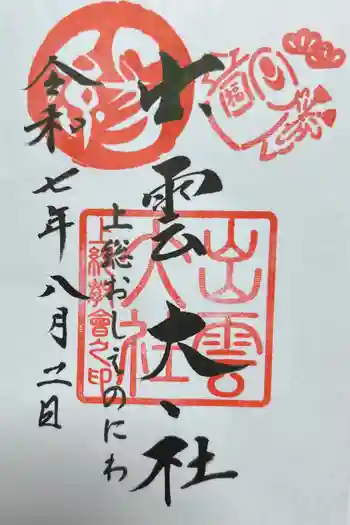 出雲大社
上総おしえのにわ
令和七年八月二日
出雲
大社
上総教會之印
福